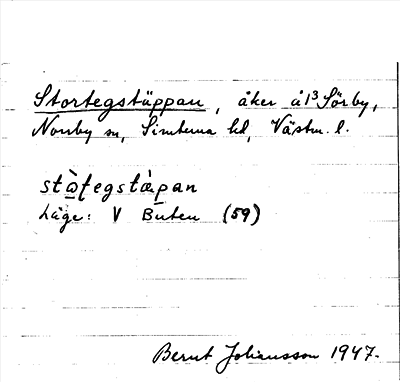 Stortegstäppan, åker å 1³ Sörby,
Norrby sn, Simtuna hd, Västm. l.
stò̱ʈegstàpan
Läge: V Buten (59)
Bernt Johansson 1947.